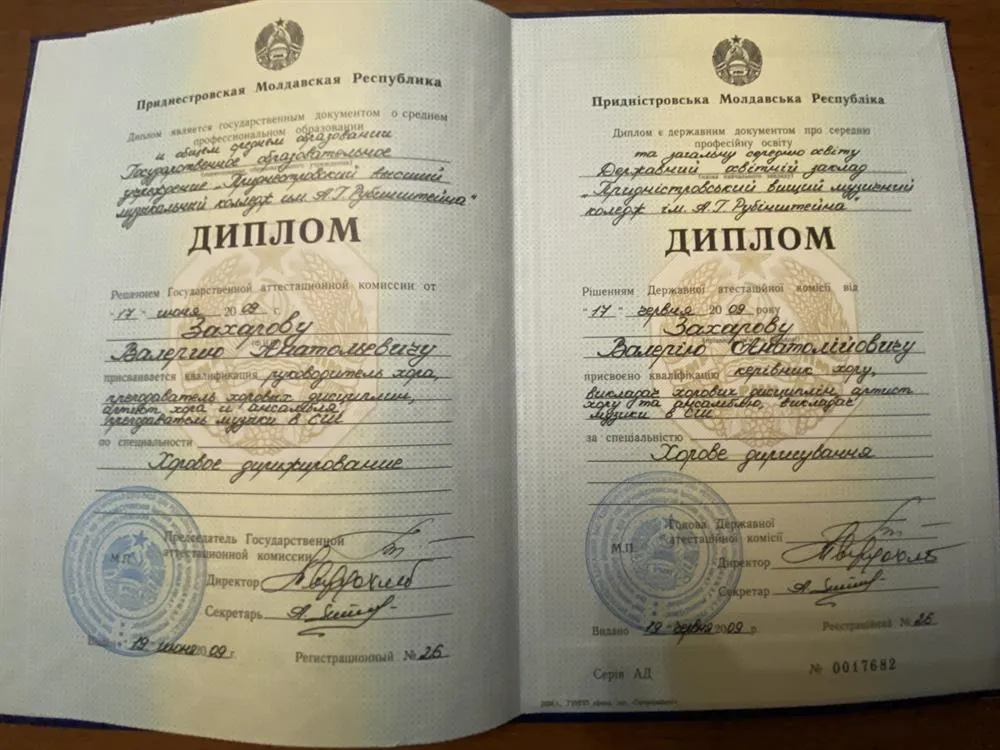 Приднестровская Молдавская Республика
Диплом является государственным документом о среднем
профессиональном образовании
и общем среднем образовании
Государственное образовательное
учреждение "Приднестровский высший
музыкальный колледж им. А.Г. Рубинштейна"
ДИПЛОМ
Решением Государственной аттестационной комиссии от
"17" июня 2009 г.
Захарову
Валерию Анатольевичу
присваивается квалификация руководитель хора,
преподаватель хоровых дисциплин,
артист хора и ансамбля,
преподаватель музыки в СШ
по специальности
Хоровое дирижирование
Председатель Государственной
аттестационной комиссии
М.П.
Директор
Секретарь
19 июня 2009 г.
Регистрационный № 26
Придністровська Молдавська Республіка
Диплом є державним документом про середню
професійну освіту
та загальну середню освіту
Державний освітній заклад
"Придністровський вищий музичний
коледж ім. А.Г. Рубінштейна"
ДИПЛОМ
Рішенням Державної атестаційної комісії від
"17" червня 2009 року
Захарову
Валерію Анатолійовичу
присвоєно кваліфікацію керівник хору,
викладач хорових дисциплін, артист
хору та ансамблю, викладач
музики в СШ
за спеціальністю
Хорове диригування
Голова Державної
атестаційної комісії
М.П.
Директор
Секретар
Видано 19 червня 2009 р.
Реєстраційний № 26
Серія АД
№ 0017682